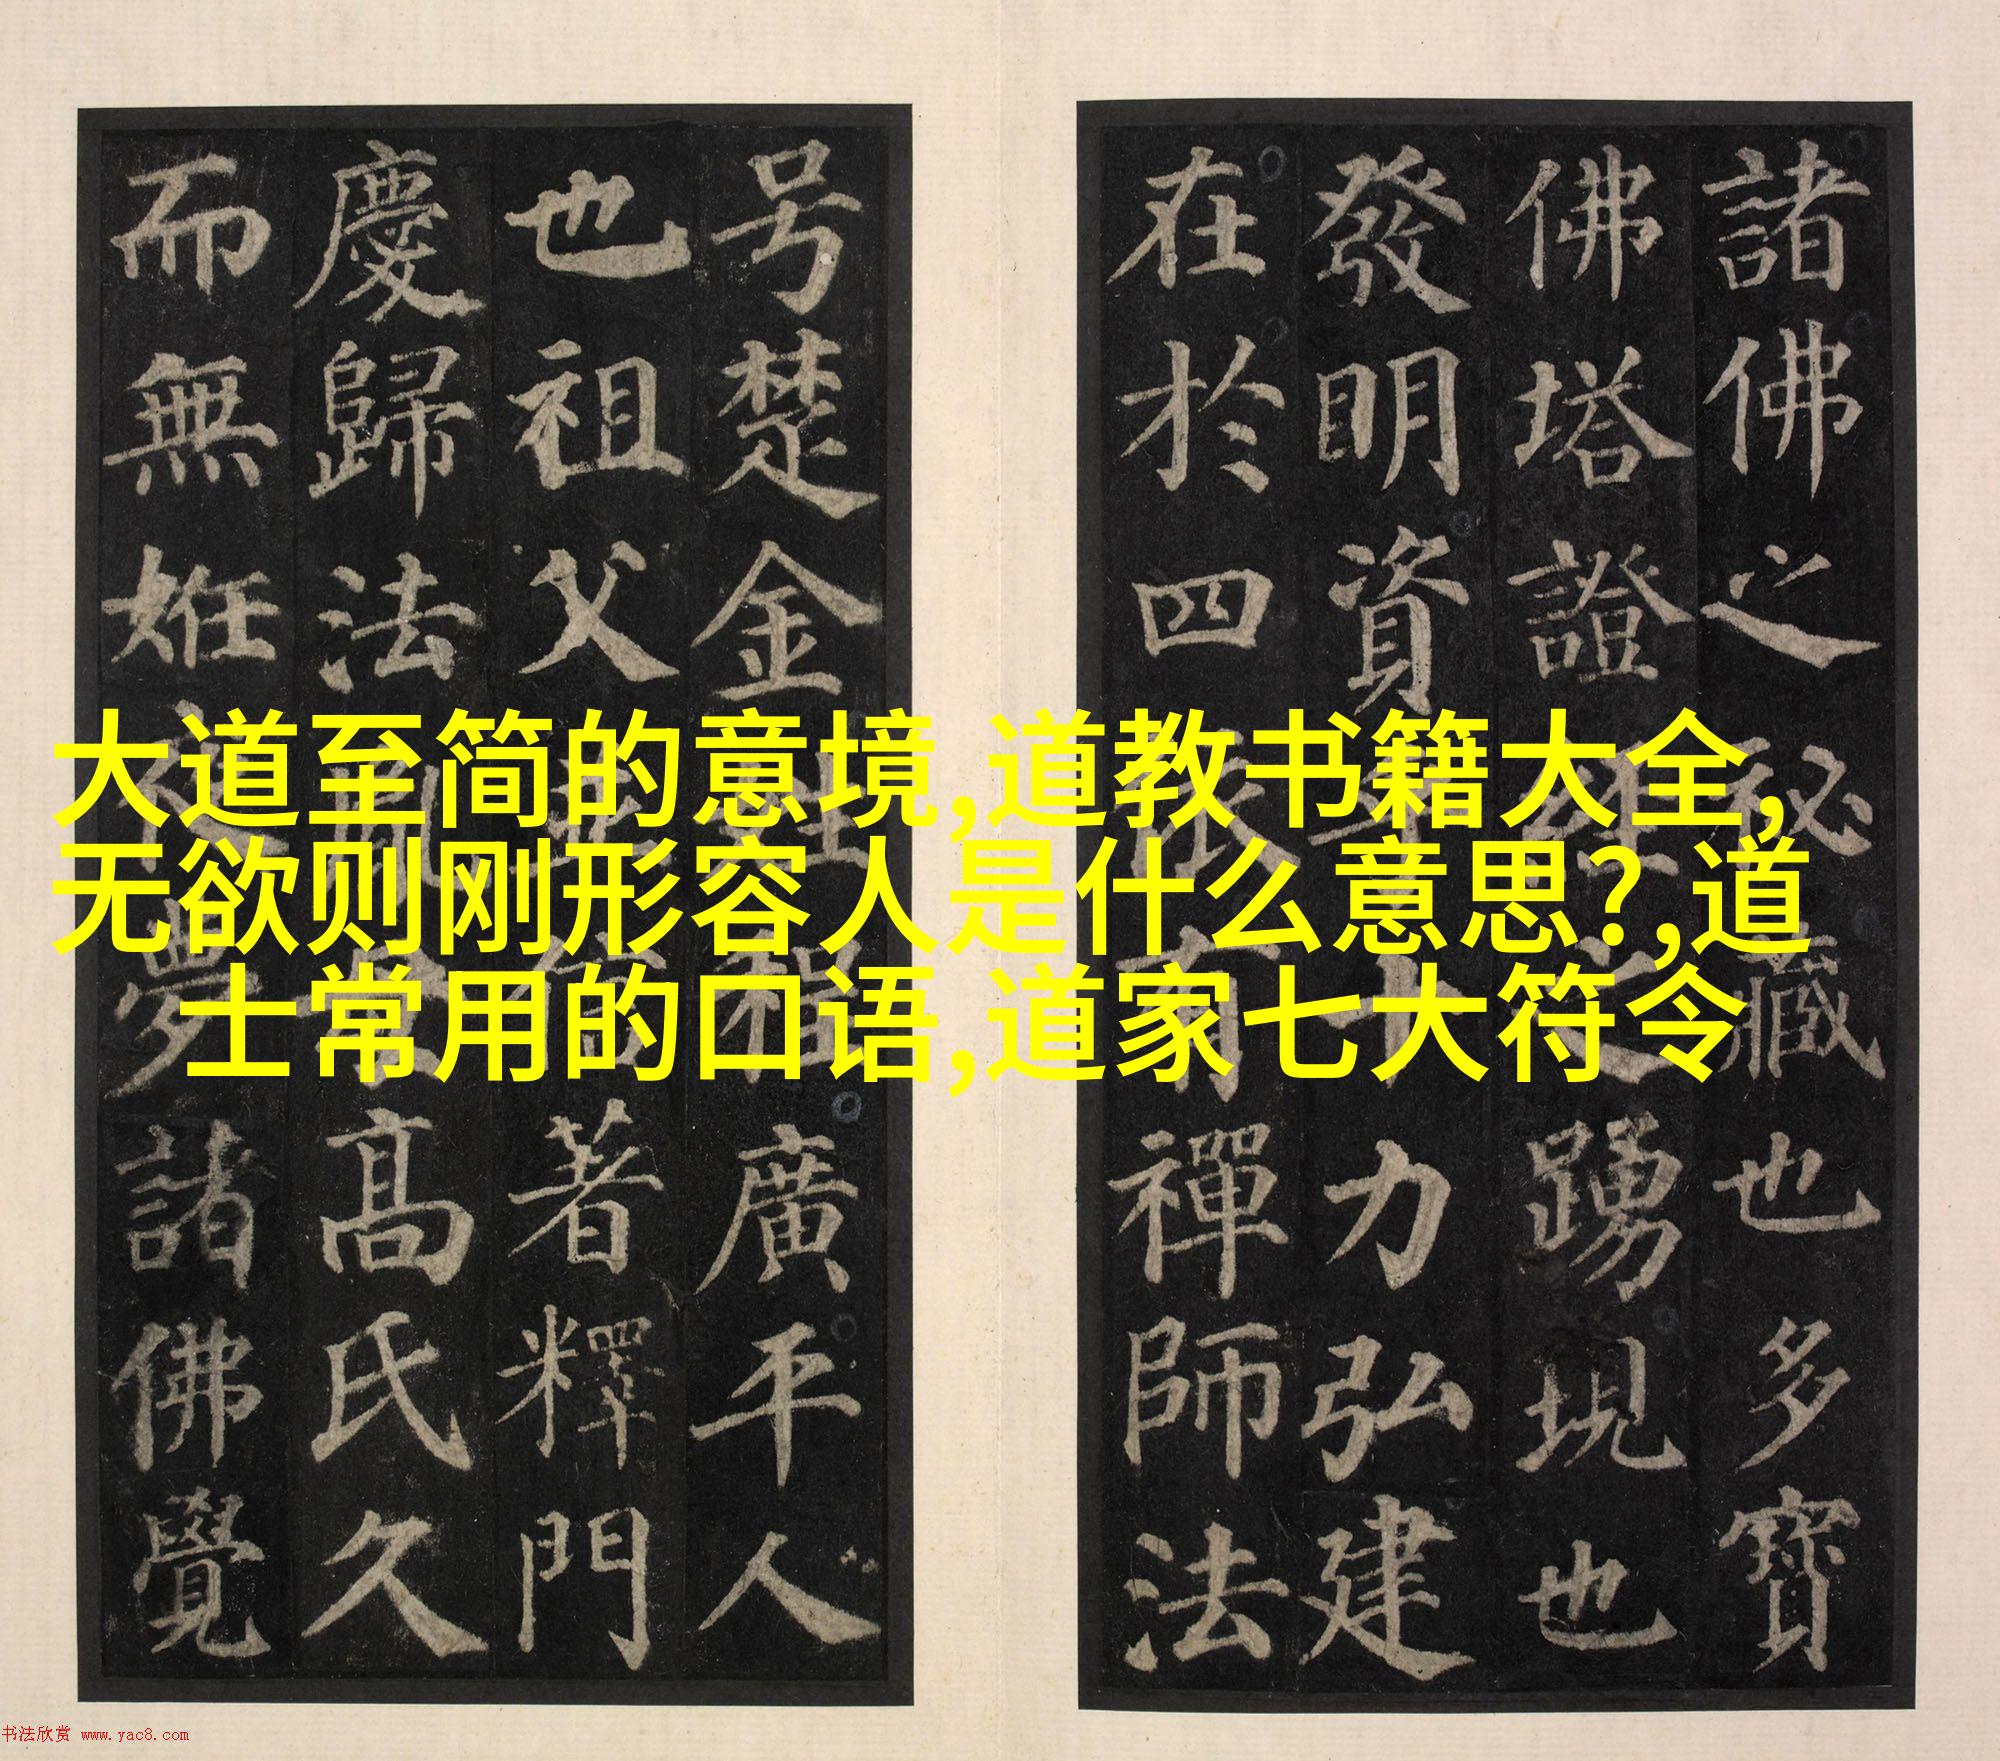 諸佛之秘藏也多寶
佛塔證經之踴現也
發明資乎十力弘建
在於四依有禪師法
号楚金姓程廣平人
也祖父並信著釋門
慶歸法胤母高氏久
而無姙夜夢諸佛覺
大道至简的意境,道教书籍大全,
无欲则刚形容人是什么意思?,道
士常用的口语,道家七大符令
书法欣赏 www.yac8.com